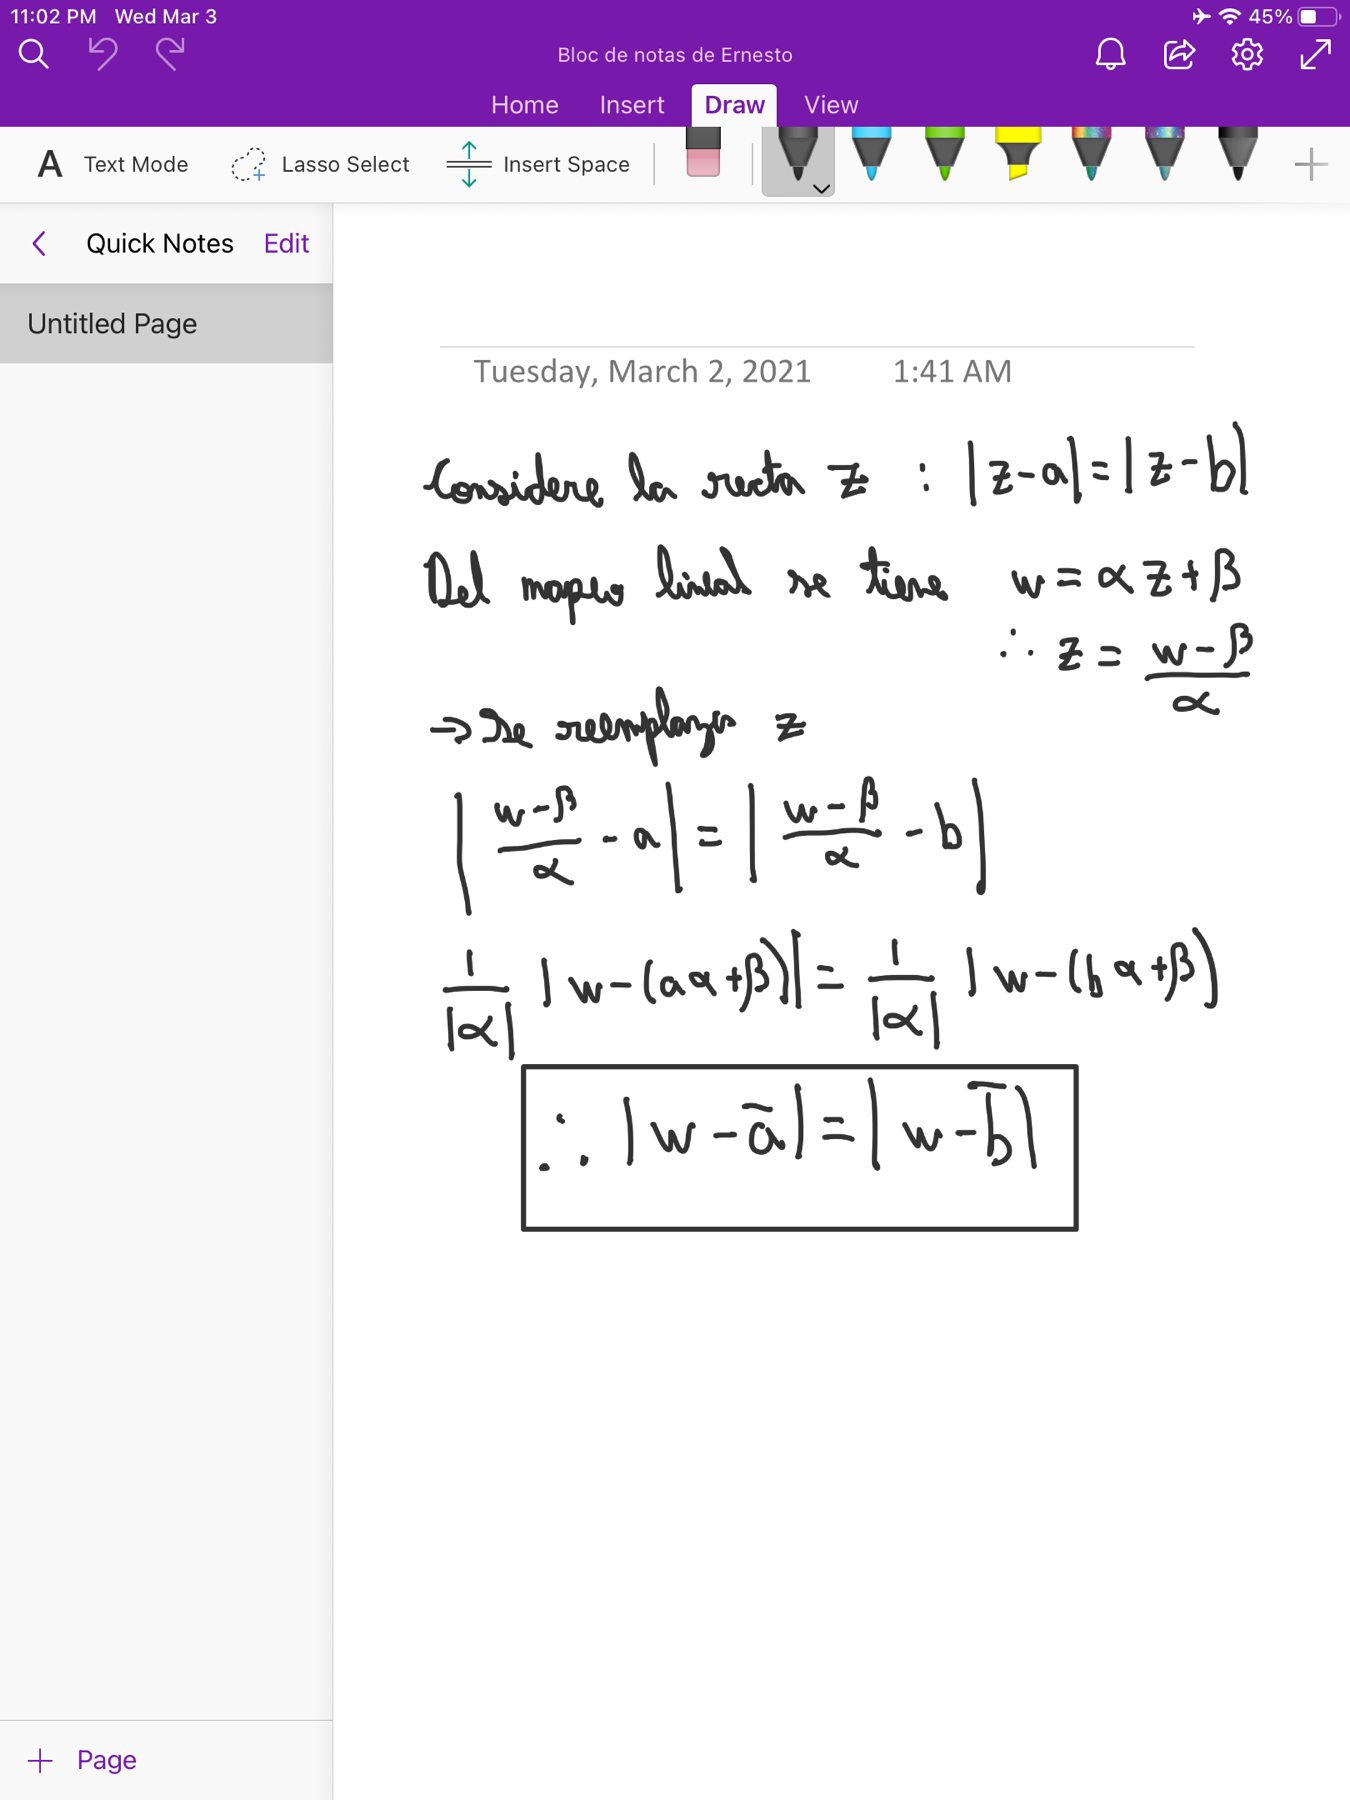 11:02 PM Wed Mar 3 45%
Bloc de notas de Ernesto
Home Insert Draw View
A Text Mode Lasso Select Insert Space
Quick Notes Edit
Untitled Page
Tuesday, March 2, 2021 1:41 AM
Considere la recta z : |z-a|=|z-b|
Del mapeo lineal se tiene w = αz+β
∴ z = (w-β)/α
→ Se reemplaza z
|(w-β)/α - a| = |(w-β)/α - b|
1/|α| |w-(aα+β)| = 1/|α| |w-(bα+β)
∴ |w-a̅|=|w-b̅|
+ Page